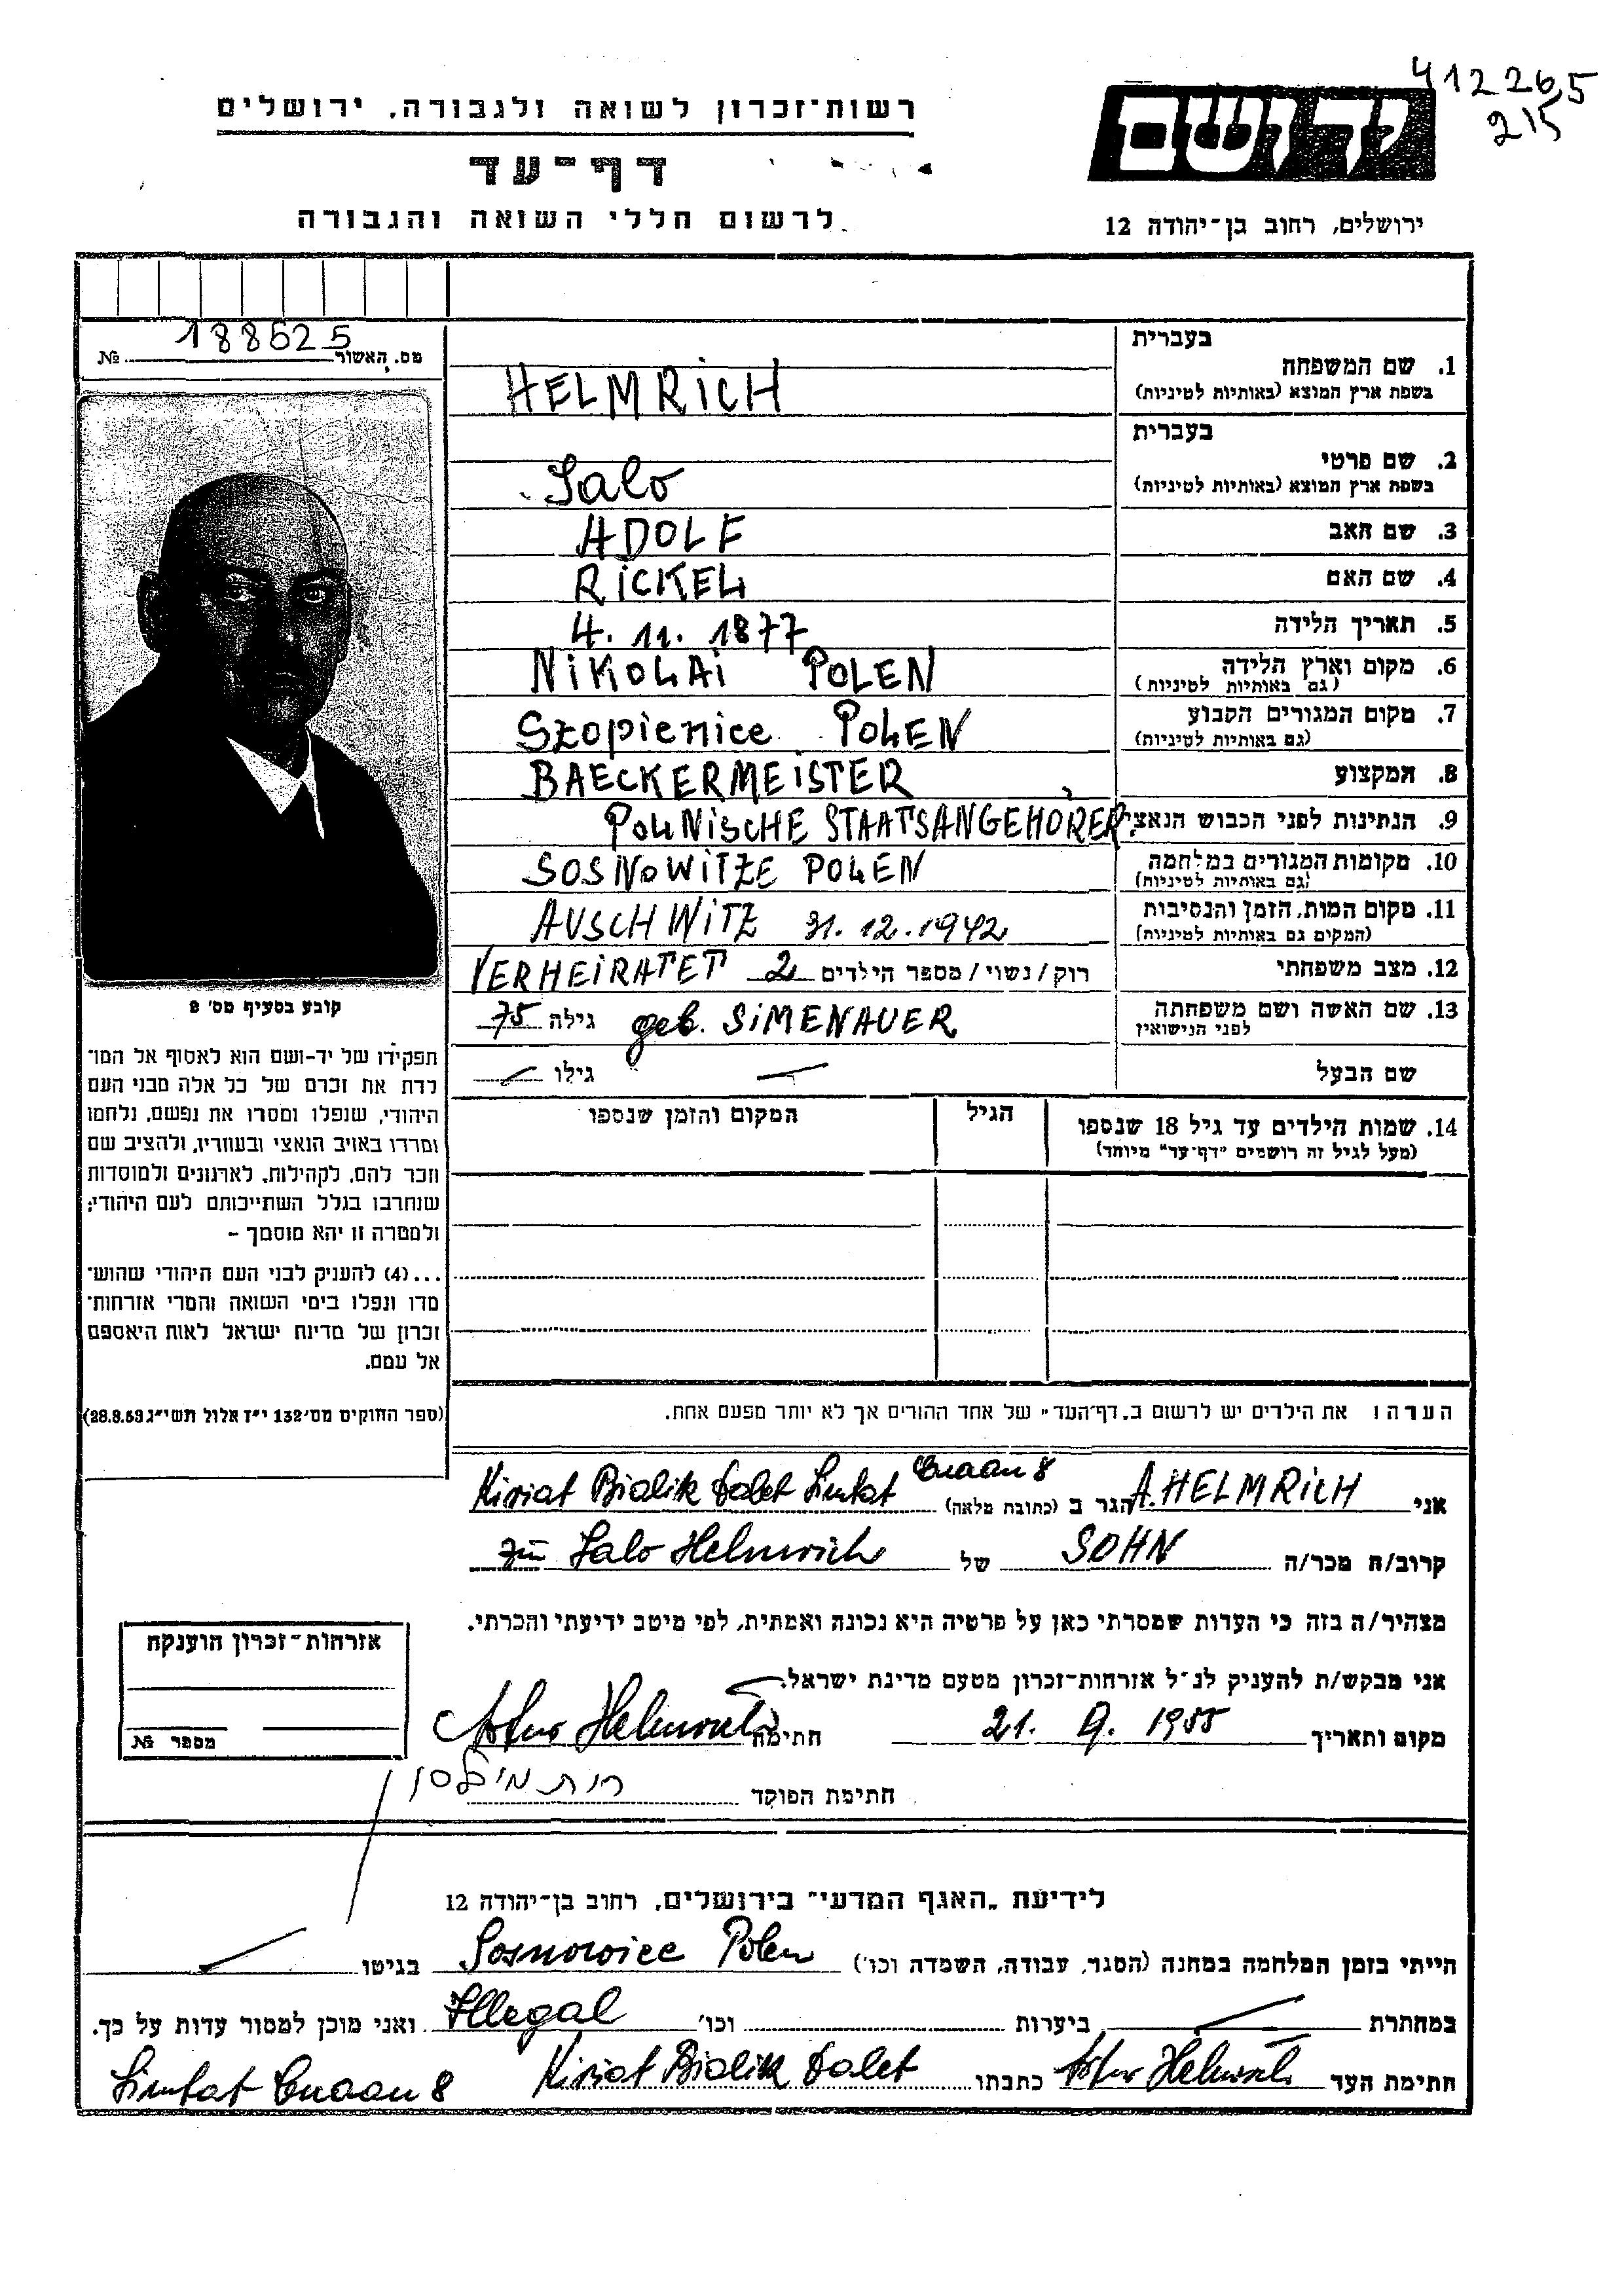 412265
215
ידושם
רשות־זכרון לשואה ולגבורה, ירושלים
דף־עד
לרשום חללי השואה והגבורה
ירושלים, רחוב בן־יהודה 12
מס. האשור 188625 №
בעברית
1. שם המשפחה
בשפת ארץ המוצא (באותיות לטיניות) HELMRICH
בעברית
2. שם פרטי
בשפת ארץ המוצא (באותיות לטיניות) Salo
3. שם האב ADOLF
4. שם האם RICKEL
5. תאריך הלידה 4. 11. 1877
6. מקום וארץ הלידה NIKOLAI POLEN
(גם באותיות לטיניות)
7. מקום המגורים הקבוע Szopienice POLEN
(גם באותיות לטיניות)
8. המקצוע BAECKERMEISTER
9. הנתינות לפני הכבוש הנאצי POLNISCHE STAATSANGEHÖRER
10. מקומות המגורים במלחמה SOSNOWITZE POLEN
(גם באותיות לטיניות)
11. מקום המות, הזמן והנסיבות AUSCHWITZ 31. 12. 1942
(המקום גם באותיות לטיניות)
12. מצב משפחתי רוק/נשוי/מספר הילדים 2 VERHEIRATET
13. שם האשה ושם משפחתה geb. SIMENAUER גילה 75
לפני הנישואין
שם הבעל — גילו —
14. שמות הילדים עד גיל 18 שנספו הגיל המקום והזמן שנספו
(מעל לגיל זה רושמים "דף־עד" מיוחד)
קובע בסעיף מס' 2
תפקידו של יד־ושם הוא לאסוף אל המו־
לדת את זכרם של כל אלה מבני העם
היהודי, שנפלו ומסרו את נפשם, נלחמו
ומרדו באויב הנאצי ובעוזריו, ולהציב שם
וזכר להם, לקהילות, לארגונים ולמוסדות
שנחרבו בגלל השתייכותם לעם היהודי;
ולמטרה זו יהא מוסמך –
...(4) להעניק לבני העם היהודי שהוש־
מדו ונפלו בימי השואה והמרי אזרחות־
זכרון של מדינת ישראל לאות היאספם
אל עמם.
(ספר החוקים מס' 132 י"ז אלול תשי"ג 28.8.53)
הערה: את הילדים יש לרשום ב"דף־העד" של אחד ההורים אך לא יותר מפעם אחת.
אני A. HELMRICH הגר ב (כתובת מלאה) Kiriat Bialik Dalet Simtat Cnaan 8
קרוב/ה מכר/ה SOHN של zu Salo Helmrich
מצהיר/ה בזה כי העדות שמסרתי כאן על פרטיה היא נכונה ואמתית, לפי מיטב ידיעתי והכרתי.
אני מבקש/ת להעניק לנ"ל אזרחות־זכרון מטעם מדינת ישראל.
מקום ותאריך 21. 9. 1955 חתימה Artur Helmrich
חתימת הפוקד רות
אזרחות־זכרון הוענקה
מספר №
לידיעת "האגף המדעי" בירושלים, רחוב בן־יהודה 12
הייתי בזמן המלחמה במחנה (הסגר, עבודה, השמדה וכו') Sosnowice Polen בגיטו —
במחתרת — ביערות וכו' Illegal ואני מוכן למסור עדות על כך.
חתימת העד Artur Helmrich כתבתו Kiriat Bialik Dalet Simtat Cnaan 8